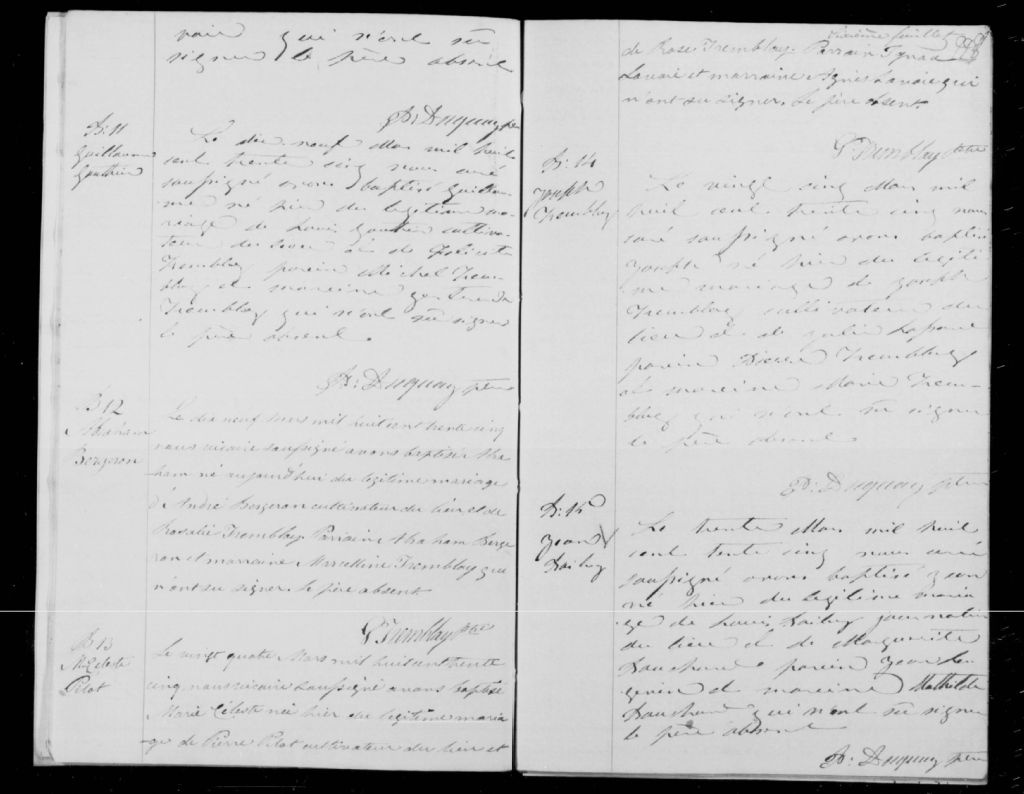 voir qui n'ont su
signer le père absent
P: Duguay ptre
B: 11
Guillaume
Gauthier
Le dix neuf Mars mil huit
cent trente cinq nous curé
soussigné avons baptisé Guillau-
me né hier du légitime ma-
riage de Louis Gauthier cultiva-
teur du lieu et de Félicité
Tremblay parein Michel Trem-
blay et mareine Gertrude
Tremblay qui n'ont su signer
le père absent.
P: Duguay ptre
B 12
Abraham
Bergeron
Le dix neuf mars mil huit cent trente cinq
nous vicaire soussigné avons baptisé Abra
ham né aujourd'hui du légitime mariage
d'André Bergeron cultivateur du lieu et de
Rosalie Tremblay. Parrain Abraham Berge
ron et marraine Marcelline Tremblay qui
n'ont su signer. le père absent
G Tremblay ptre
B 13
M. Céleste
Pilot
Le vingt quatre Mars mil huit cent trente
cinq nous vicaire soussigné avons baptisé
Marie Céleste née hier du légitime maria
ge de Pierre Pilot cultivateur du lieu et
feuillet
de Rose Tremblay. Parrain
Lavoie et marraine Agnes Lavoie qui
n'ont su signer. Le père absent.
G Tremblay ptre
B: 14
Joseph
Tremblay
Le vingt cinq Mars mil
huit cent trente cinq nous
curé soussigné avons baptisé
Joseph né hier du légiti-
me mariage de Joseph
Tremblay cultivateur du
lieu et de Julie
parein Tremblay
et mareine Marie Trem-
blay qui n'ont su signer
le père absent.
P: Duguay ptre
B: 15
Jean
Dailey
Le trente Mars mil huit
cent tente cinq nous curé
soussigné avons baptisé Jean
né hier du légitime maria
ge de Louis Dailey journalier
du lieu et de Marguerite
Bouchard parein Jean
et mareine Mathilde
Bouchard qui n'ont su signer
le père absent
P: Duguay ptre